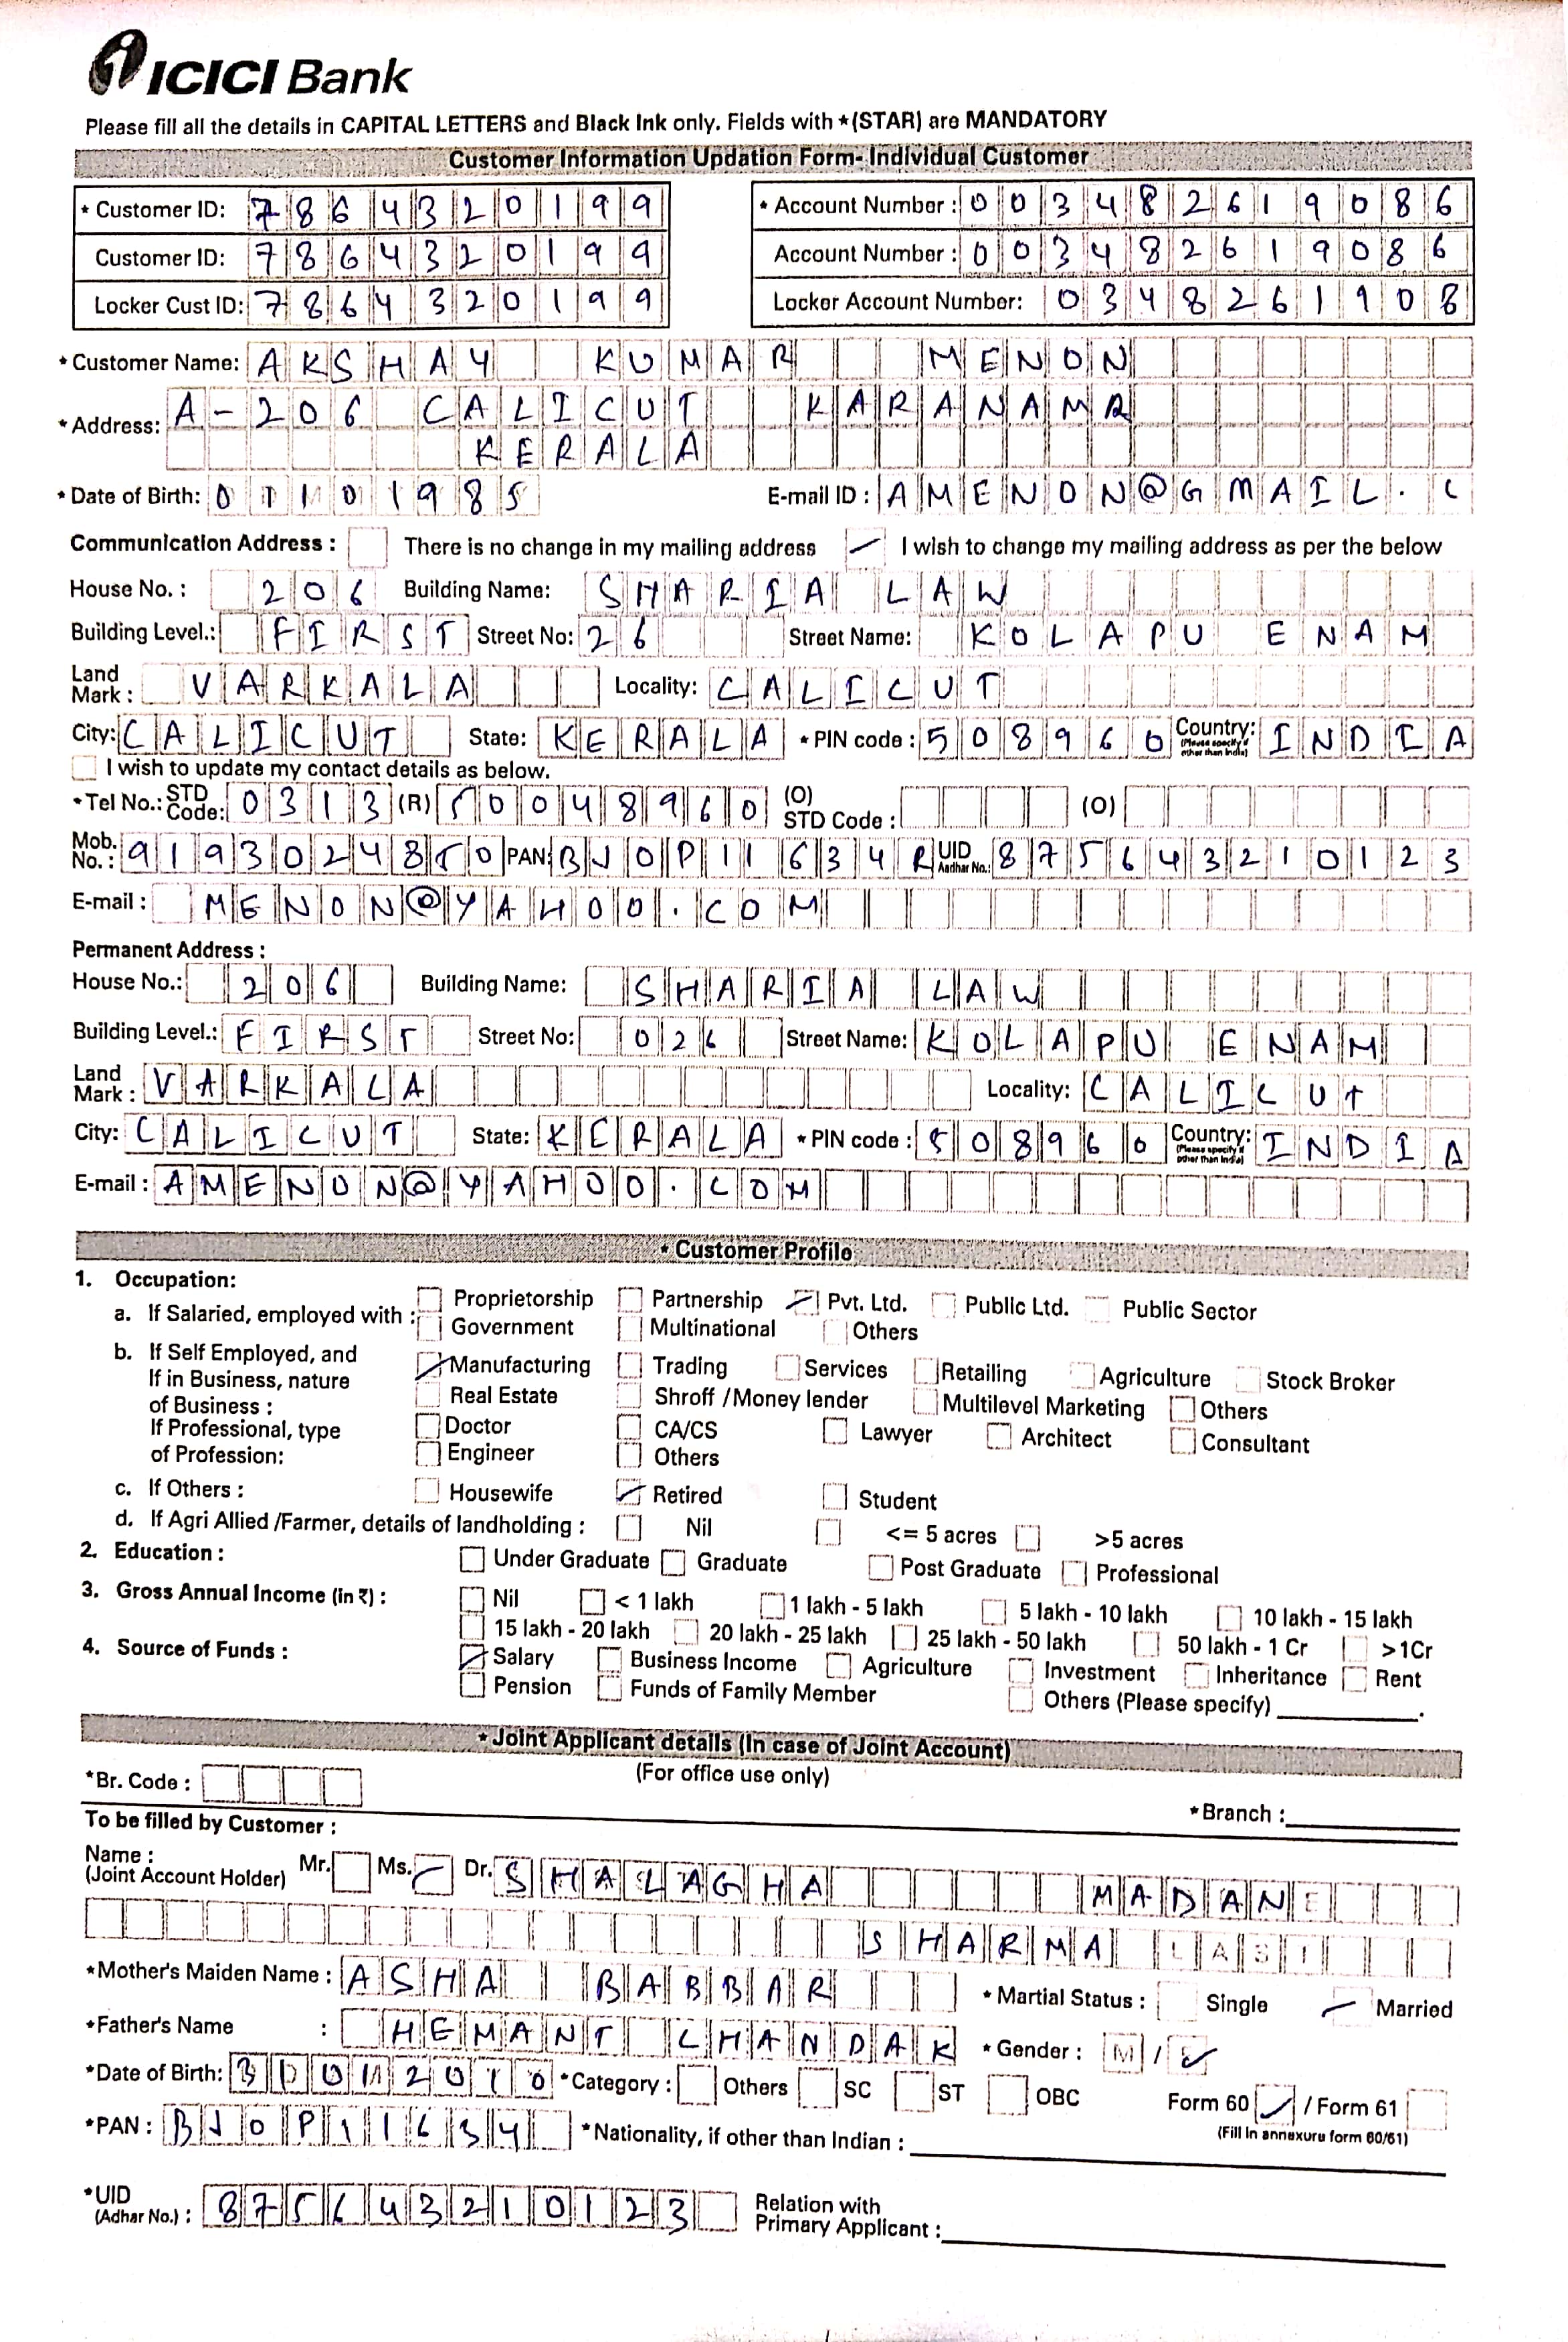 ICICI Bank
Please fill all the details in CAPITAL LETTERS and Black Ink only. Fields with *(STAR) are MANDATORY
Customer Information Updation Form- Individual Customer
* Customer ID: 7864320199 * Account Number : 003482619086
Customer ID: 7864320199 Account Number : 003482619086
Locker Cust ID: 7864320199 Locker Account Number: 0348261908
* Customer Name: AKSHAY KUMAR MENON
* Address: A-206 CALICUT KARANAMA
KERALA
* Date of Birth: 01101985 E-mail ID : AMENON@GMAIL.C
Communication Address : There is no change in my mailing address I wish to change my mailing address as per the below
House No. : 206 Building Name: SHARIA LAW
Building Level.: FIRST Street No: 26 Street Name: KOLAPU ENAM
Land Mark : VARKALA Locality: CALICUT
City: CALICUT State: KERALA * PIN code : 508960 Country: (Please specify if other than India) INDIA
I wish to update my contact details as below.
*Tel No.: STD Code: 0313 (R) 50048960 (O) STD Code : (O)
Mob. No. : 9193024850 PAN: BJOP11634R UID Aadhar No.: 875643210123
E-mail : MENON@YAHOO.COM
Permanent Address :
House No.: 206 Building Name: SHARIA LAW
Building Level.: FIRST Street No: 026 Street Name: KOLAPU ENAM
Land Mark : VARKALA Locality: CALICUT
City: CALICUT State: KERALA * PIN code : 508960 Country: (Please specify if other than India) INDIA
E-mail : AMENON@YAHOO.COM
* Customer Profile
1. Occupation:
a. If Salaried, employed with : Proprietorship Partnership Pvt. Ltd. Public Ltd. Public Sector
Government Multinational Others
b. If Self Employed, and Manufacturing Trading Services Retailing Agriculture Stock Broker
If in Business, nature Real Estate Shroff /Money lender Multilevel Marketing Others
of Business :
If Professional, type Doctor CA/CS Lawyer Architect Consultant
of Profession: Engineer Others
c. If Others : Housewife Retired Student
d. If Agri Allied /Farmer, details of landholding : Nil <= 5 acres >5 acres
2. Education : Under Graduate Graduate Post Graduate Professional
3. Gross Annual Income (in ₹) : Nil < 1 lakh 1 lakh - 5 lakh 5 lakh - 10 lakh 10 lakh - 15 lakh
15 lakh - 20 lakh 20 lakh - 25 lakh 25 lakh - 50 lakh 50 lakh - 1 Cr >1Cr
4. Source of Funds : Salary Business Income Agriculture Investment Inheritance Rent
Pension Funds of Family Member Others (Please specify)
* Joint Applicant details (In case of Joint Account)
(For office use only)
*Br. Code :
*Branch :
To be filled by Customer :
Name : (Joint Account Holder) Mr. Ms. Dr. SHALAGHA MADAN
SHARMA LAST
*Mother's Maiden Name : ASHA BABBAR * Martial Status : Single Married
*Father's Name : HEMANT CHANDAK * Gender : M /
*Date of Birth: *Category : Others SC ST OBC Form 60 / Form 61
*PAN : BJOP11634 *Nationality, if other than Indian : (Fill In annexure form 60/61)
*UID (Adhar No.) : 875643210123 Relation with Primary Applicant :